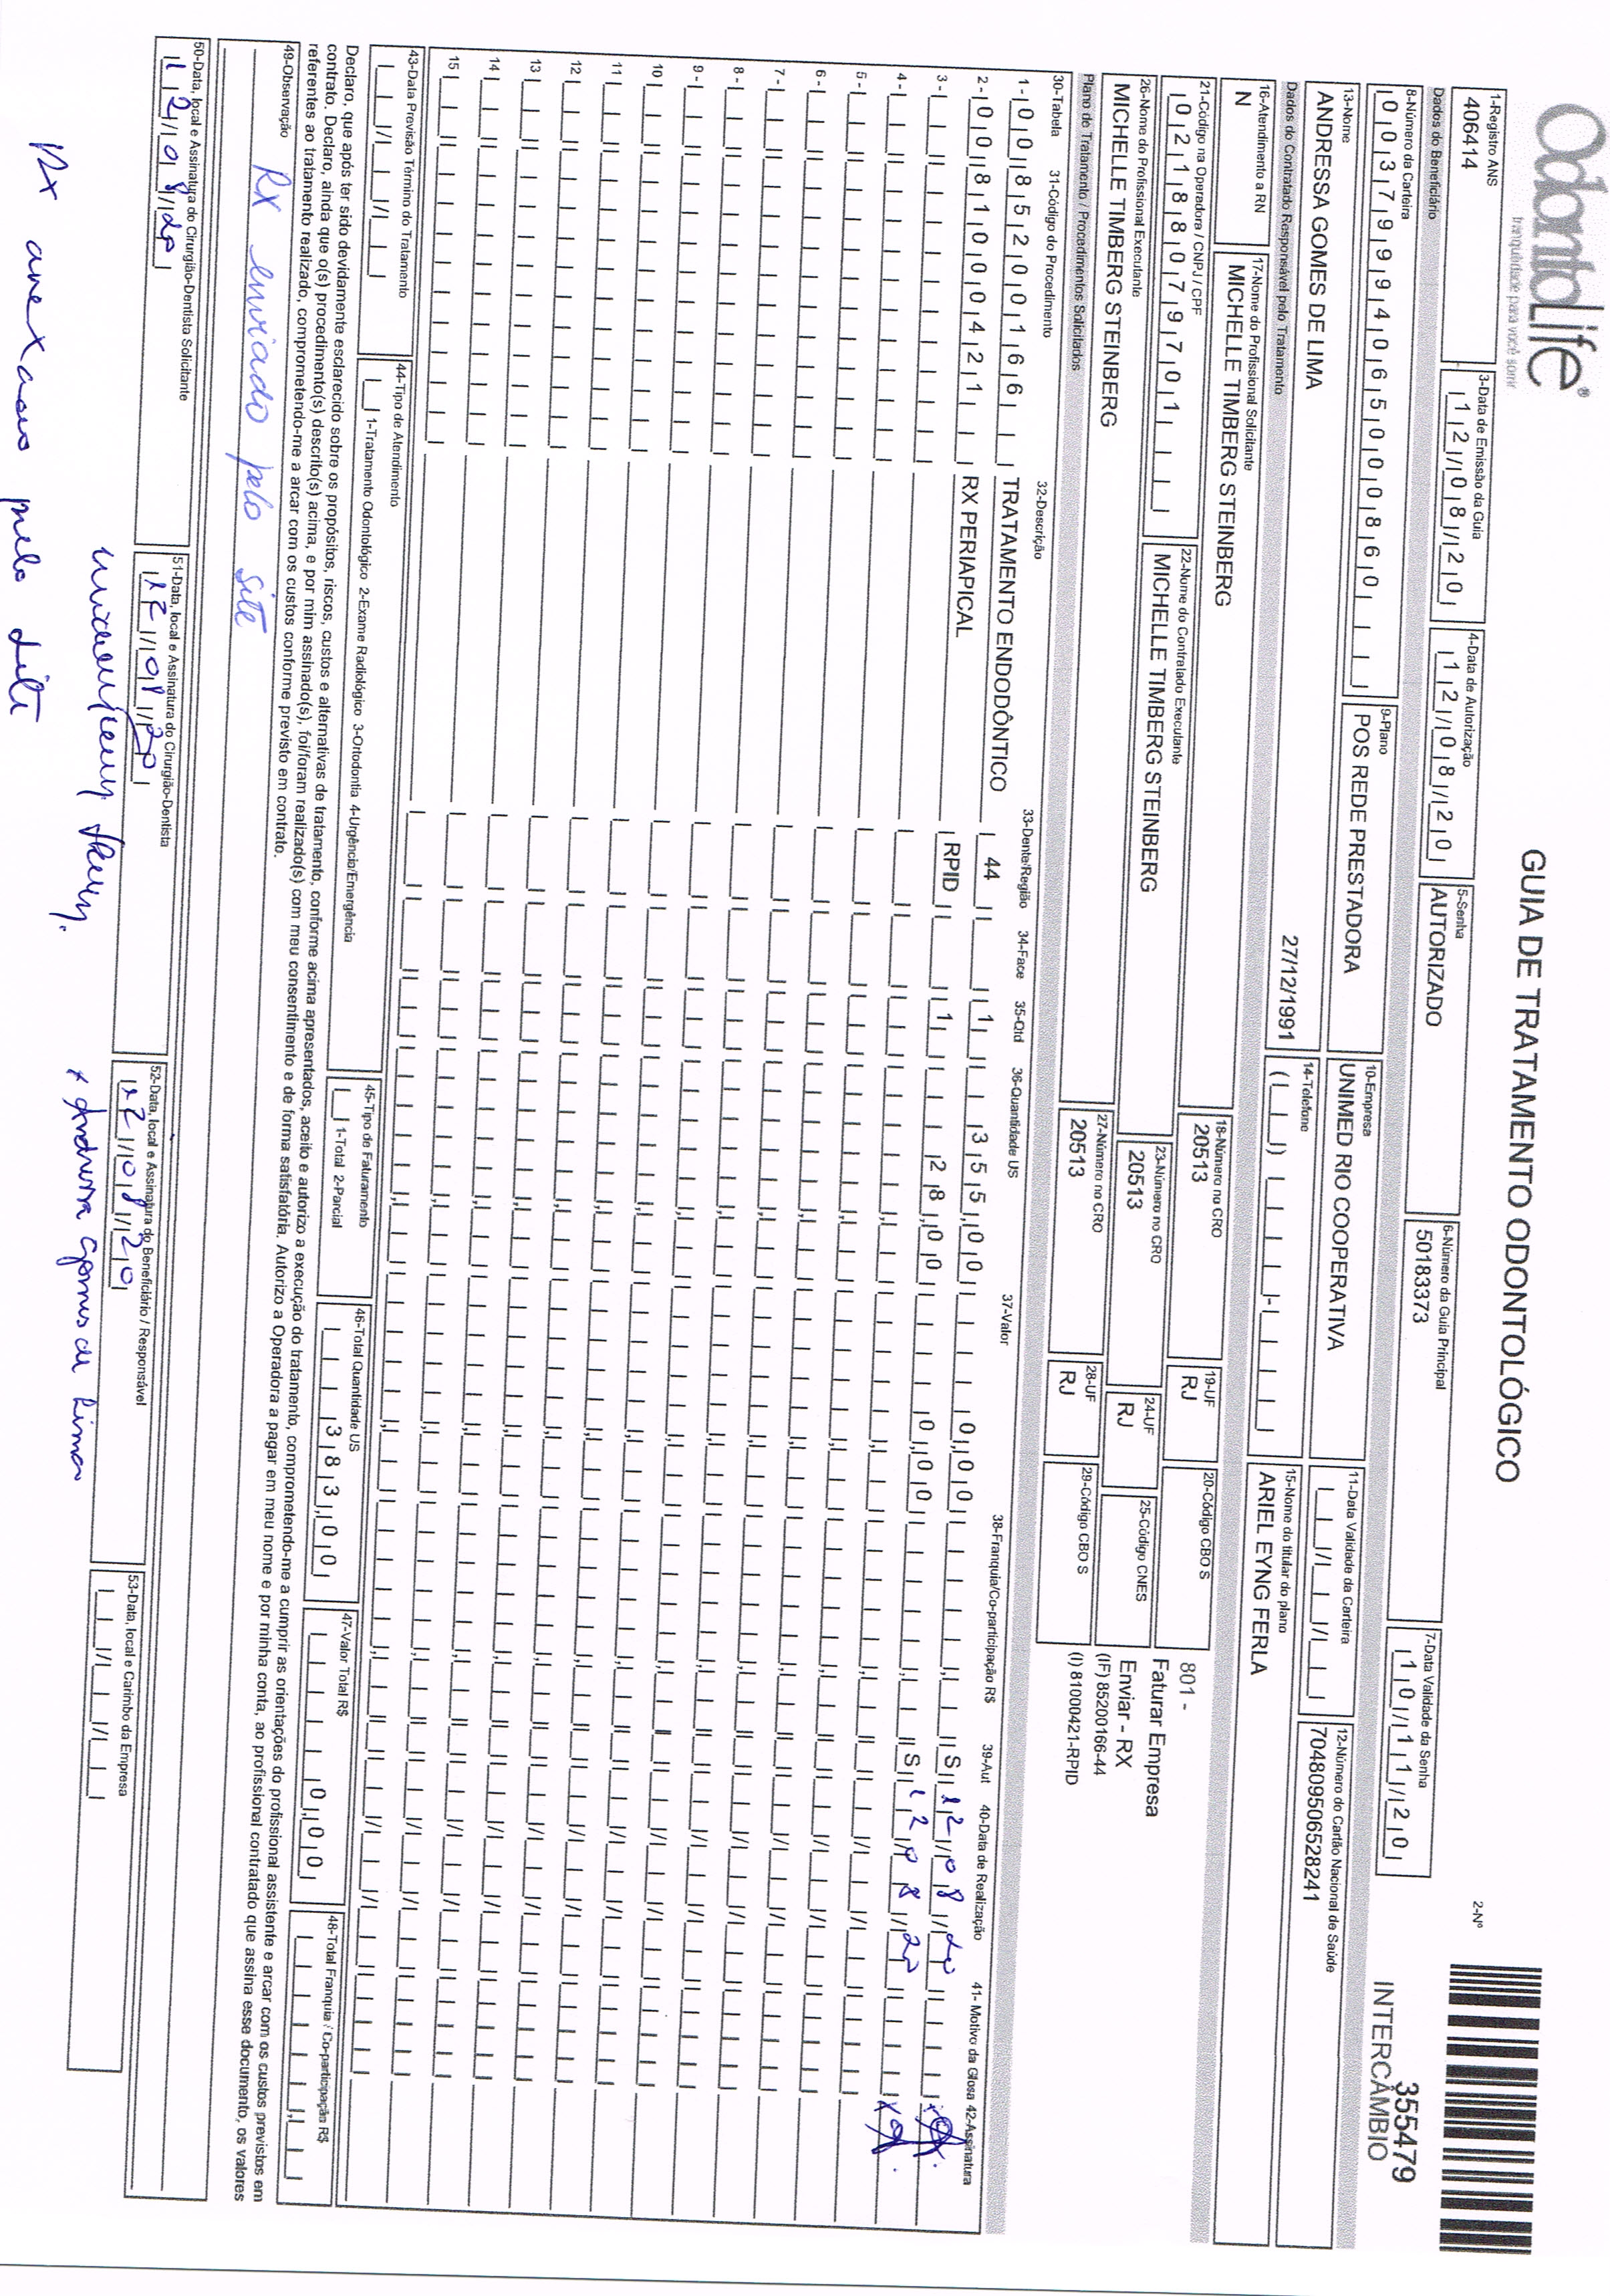 OdontoLife®
tranquilidade para você sorrir
GUIA DE TRATAMENTO ODONTOLÓGICO
2-Nº
355479
INTERCÂMBIO
1-Registro ANS
406414
3-Data de Emissão da Guia
12/08/20
4-Data de Autorização
12/08/20
5-Senha
AUTORIZADO
6-Número da Guia Principal
50183373
7-Data Validade da Senha
10/11/20
Dados do Beneficiário
8-Número da Carteira
00379994065000860
9-Plano
POS REDE PRESTADORA
10-Empresa
UNIMED RIO COOPERATIVA
11-Data Validade da Carteira
12-Número do Cartão Nacional de Saúde
704809506528241
13-Nome
ANDRESSA GOMES DE LIMA
27/12/1991
14-Telefone
15-Nome do titular do plano
ARIEL EYNG FERLA
Dados do Contratado Responsável pelo Tratamento
16-Atendimento a RN
N
17-Nome do Profissional Solicitante
MICHELLE TIMBERG STEINBERG
18-Número no CRO
20513
19-UF
RJ
20-Código CBO S
801 -
Faturar Empresa
Enviar - RX
(IF) 85200166-44
(I) 81000421-RPID
21-Código na Operadora / CNPJ / CPF
02188079701
22-Nome do Contratado Executante
MICHELLE TIMBERG STEINBERG
23-Número no CRO
20513
24-UF
RJ
25-Código CNES
26-Nome do Profissional Executante
MICHELLE TIMBERG STEINBERG
27-Número no CRO
20513
28-UF
RJ
29-Código CBO S
Plano de Tratamento / Procedimentos Solicitados
30-Tabela 31-Código do Procedimento 32-Descrição 33-Dente/Região 34-Face 35-Qtd 36-Quantidade US 37-Valor 38-Franquia/Co-participação R$ 39-Aut 40-Data de Realização 41- Motivo da Glosa 42-Assinatura
1- 00 85200166 TRATAMENTO ENDODÔNTICO 44 1 355,00 0,00 S 12/08/20
2- 00 81000421 RX PERIAPICAL RPID 1 28,00 0,00 S 12/08/20
3 -
4 -
5 -
6 -
7 -
8 -
9 -
10
11
12
13
14
15
43-Data Previsão Término do Tratamento
44-Tipo de Atendimento
1-Tratamento Odontológico 2-Exame Radiológico 3-Ortodontia 4-Urgência/Emergência
45-Tipo de Faturamento
1-Total 2-Parcial
46-Total Quantidade US
383,00
47-Valor Total R$
0,00
48-Total Franquia / Co-participação R$
Declaro, que após ter sido devidamente esclarecido sobre os propósitos, riscos, custos e alternativas de tratamento, conforme acima apresentados, aceito e autorizo a execução do tratamento, comprometendo-me a cumprir as orientações do profissional assistente e arcar com os custos previstos em
contrato. Declaro, ainda que o(s) procedimento(s) descrito(s) acima, e por mim assinado(s), foi/foram realizado(s) com meu consentimento e de forma satisfatória. Autorizo a Operadora a pagar em meu nome e por minha conta, ao profissional contratado que assina esse documento, os valores
referentes ao tratamento realizado, comprometendo-me a arcar com os custos conforme previsto em contrato.
49-Observação
RX enviado pelo site
50-Data, local e Assinatura do Cirurgião-Dentista Solicitante
51-Data, local e Assinatura do Cirurgião-Dentista
12/08/20
52-Data, local e Assinatura do Beneficiário / Responsável
12/08/20
53-Data, local e Carimbo da Empresa
x Andressa Gomes de Lima